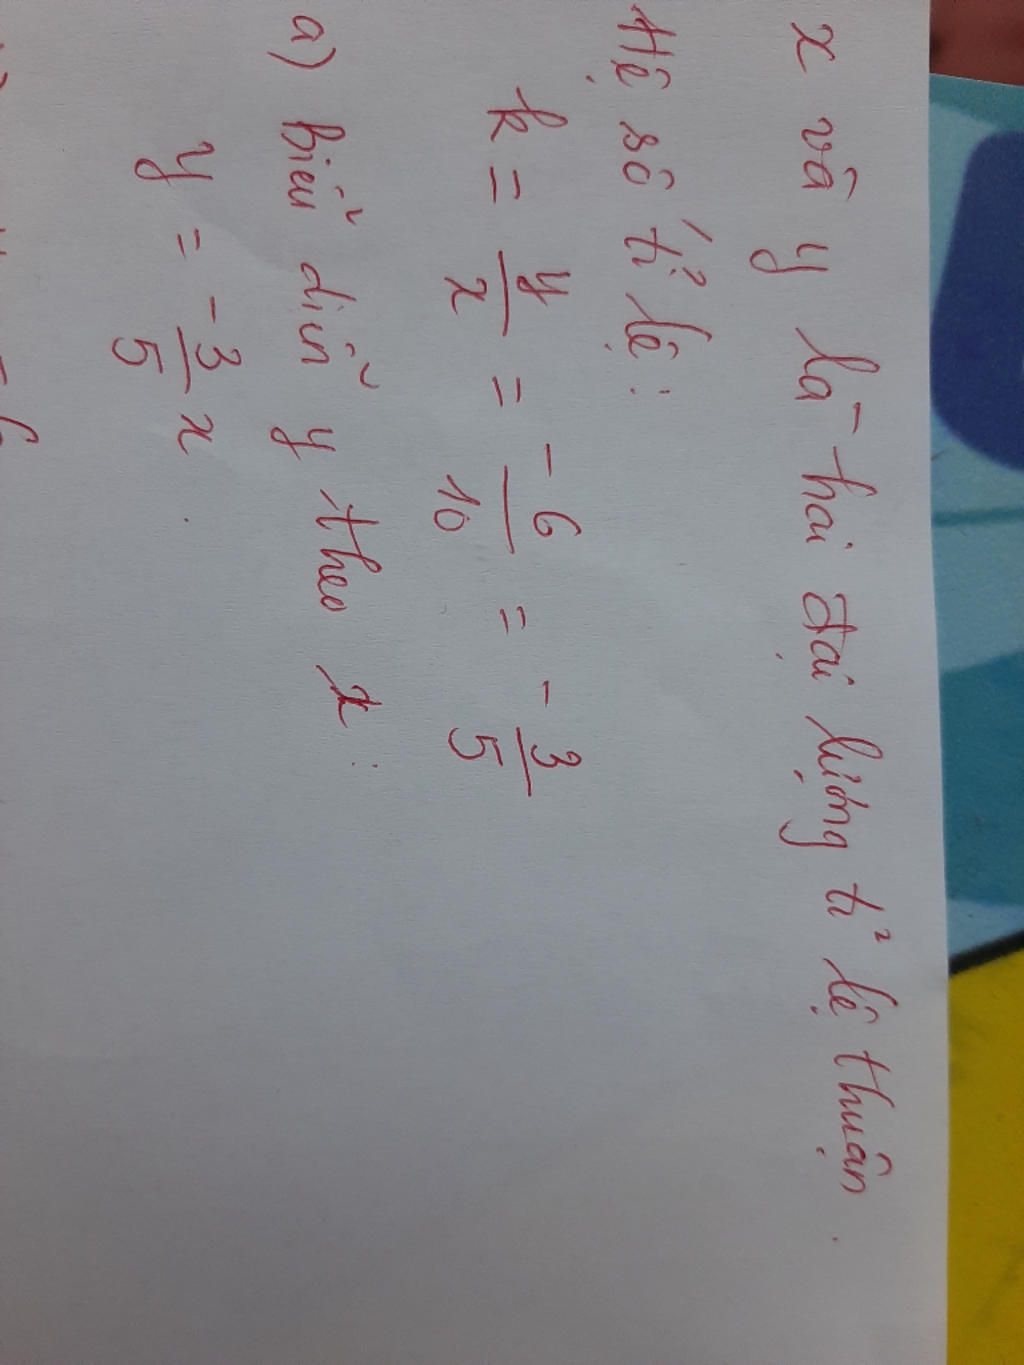 x và y là hai đại lượng tỉ lệ thuận.
Hệ số tỉ lệ:
k = y/x = -6/10 = -3/5
a) Biểu diễn y theo x:
y = -3/5 x.